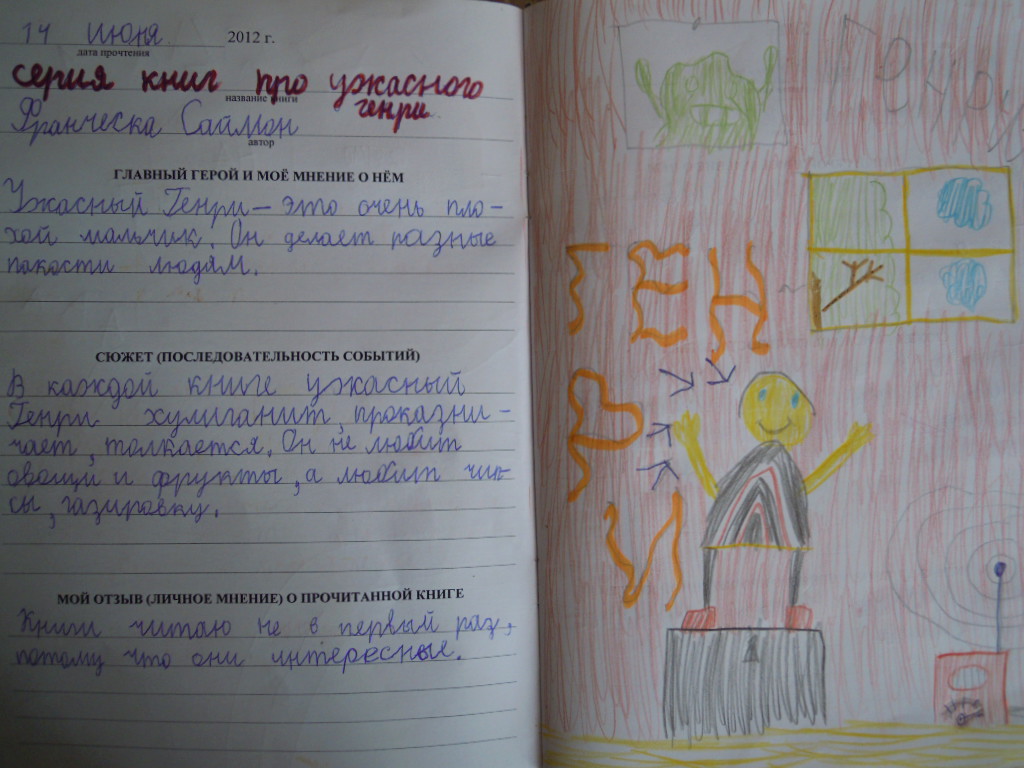 14 июня 2012 г.
дата прочтения
серия книг про ужасного
название книги
генри
Франческа Саймон
автор
ГЛАВНЫЙ ГЕРОЙ И МОЁ МНЕНИЕ О НЁМ
Ужасный Генри - это очень пло-
хой мальчик. Он делает разные
пакости людям.
СЮЖЕТ (ПОСЛЕДОВАТЕЛЬНОСТЬ СОБЫТИЙ)
В каждой книге ужасный
Генри хулиганит, проказни-
чает, толкается. Он не любит
овощи и фрукты, а любит чип-
сы, газировку.
МОЙ ОТЗЫВ (ЛИЧНОЕ МНЕНИЕ) О ПРОЧИТАННОЙ КНИГЕ
Книги читаю не в первый раз,
потому что они интересные.
Генри
ГЕН-
Р
И
1